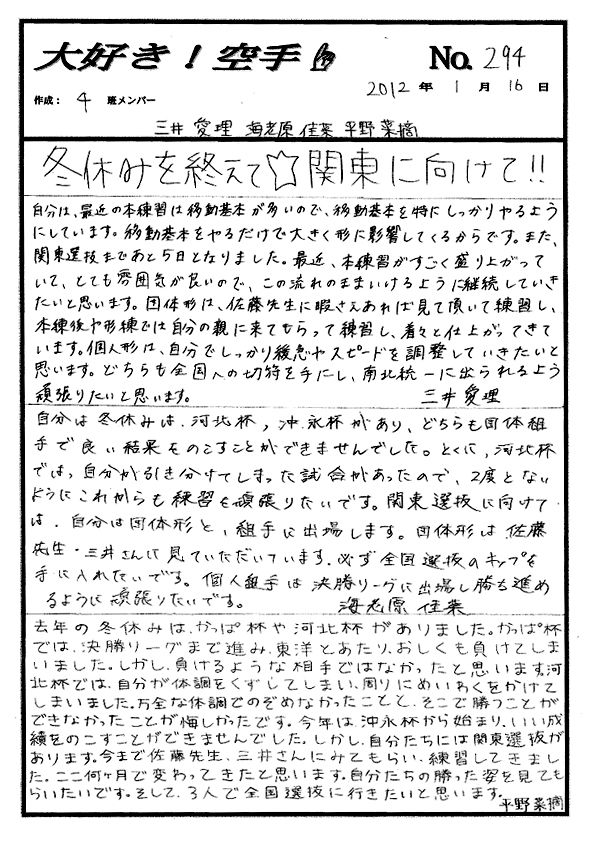 大好き!空手 No.294
2012年1月16日
作成: 4 班メンバー
三井 愛理 海老原 佳菜 平野 菜摘
冬休みを終えて☆関東に向けて!!
自分は、最近の本練習は移動基本が多いので、移動基本を特にしっかりやるよう
にしています。移動基本をやるだけで大きく形に影響してくるからです。また、
関東選抜まであと5日となりました。最近、本練習がすごく盛り上がって
いて、とても雰囲気が良いので、この流れのままいけるように継続していき
たいと思います。団体形は、佐藤先生に暇さえあれば見て頂いて練習し、
本練後や形練では自分の親に来てもらって練習し、着々と仕上がってきて
います。個人形は、自分でしっかり緩急やスピードを調整していきたいと
思います。どちらも全国への切符を手にし、南北統一に出られるよう
頑張りたいと思います。 三井 愛理
自分は冬休みは、河北杯、沖永杯があり、どちらも団体組
手で良い結果をのこすことができませんでした。とくに、河北杯
では、自分が引き分けてしまった試合があったので、2度とない
ようにこれからも練習を頑張りたいです。関東選抜に向けて
は、自分は団体形と、組手に出場します。団体形は佐藤
先生・三井さんに見ていただいています。必ず全国選抜のキップを
手に入れたいです。個人組手は決勝リーグに出場し勝ち進め
るように頑張りたいです。 海老原 佳菜
去年の冬休みは、かっぱ杯や河北杯がありました。かっぱ杯
では、決勝リーグまで進み、東洋とあたり、おしくも負けてしま
いました。しかし、負けるような相手ではなかったと思います。河
北杯では、自分が体調をくずしてしまい、周りにめいわくをかけて
しまいました。万全な体調でのぞめなかったことと、そこで勝つことが
できなかったことが悔しかったです。今年は、沖永杯から始まり、いい成
績をのこすことができませんでした。しかし、自分たちには関東選抜が
あります。今まで佐藤先生、三井さんにみてもらい、練習してきまし
た。ここ何ヶ月で変わってきたと思います。自分たちの勝った姿を見ても
らいたいです。そして、3人で全国選抜に行きたいと思います。
平野菜摘